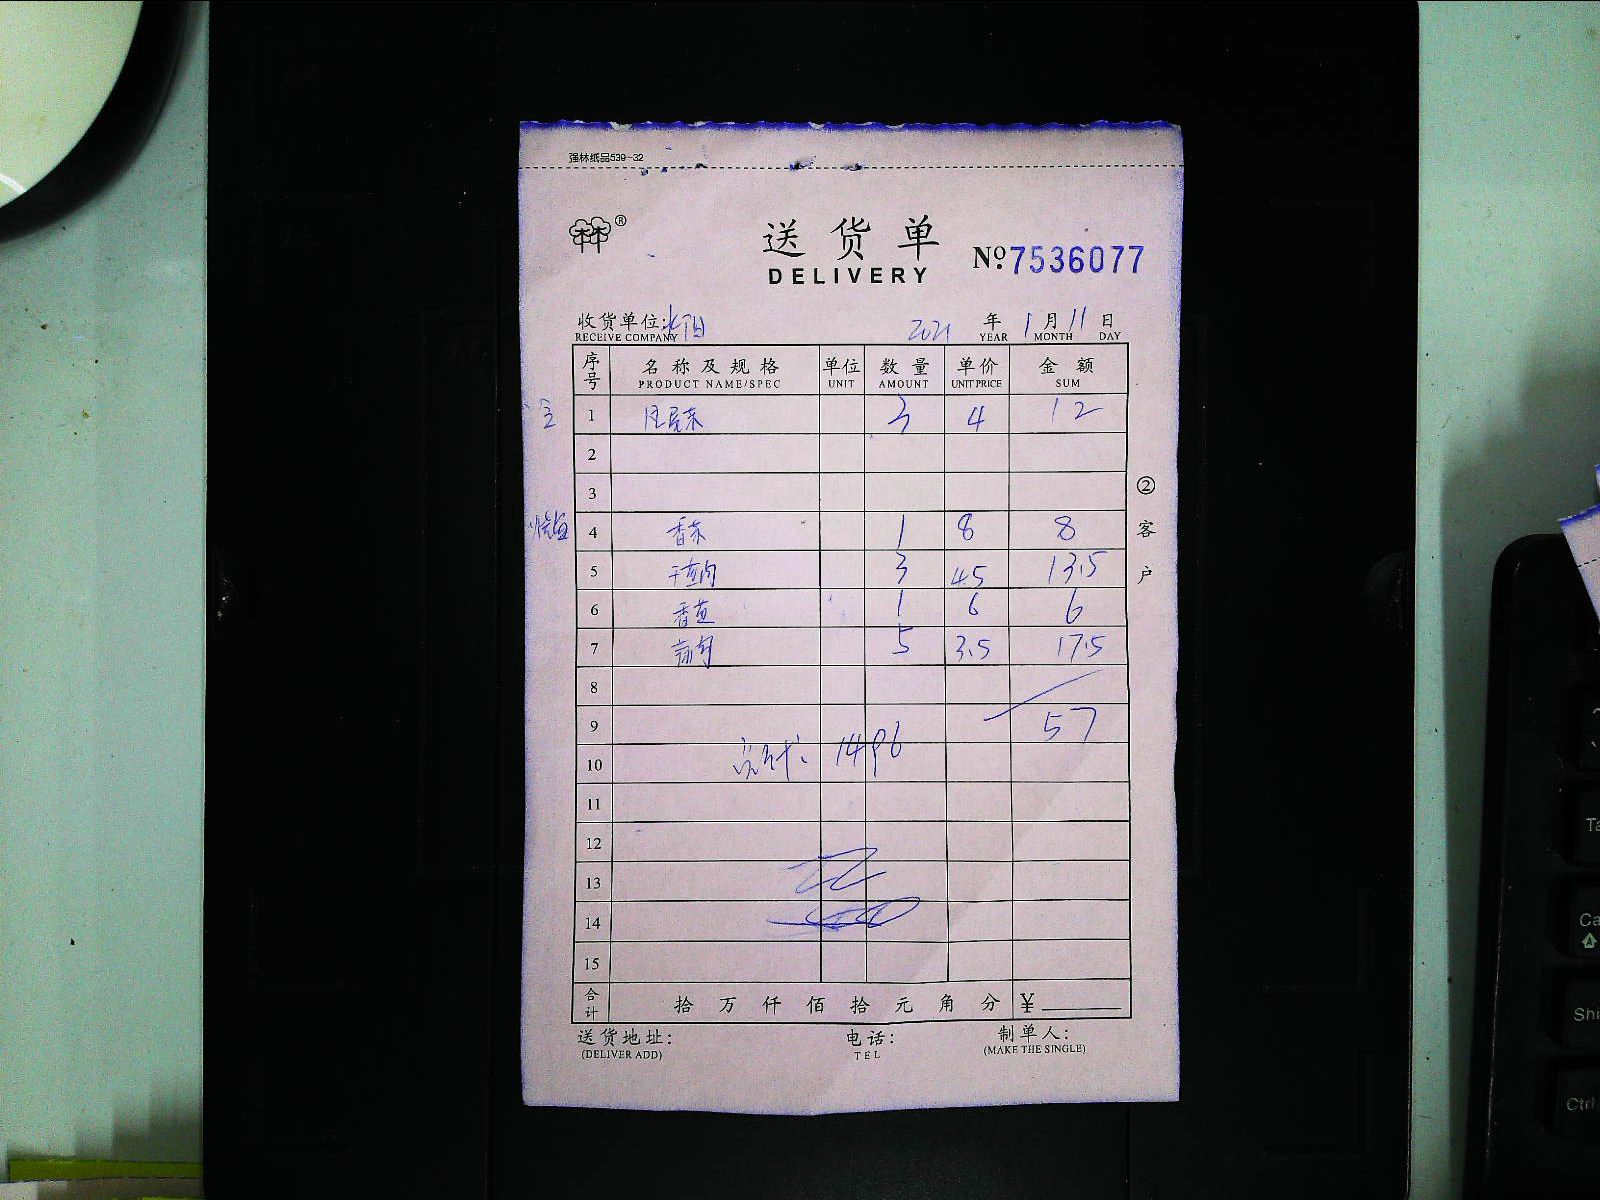 强林纸品539-32
®
送货单
DELIVERY
Nº 7536077
收货单位:
RECEIVE COMPANY
2021 年 1 月 11 日
YEAR MONTH DAY
序号 名称及规格 单位 数量 单价 金额
PRODUCT NAME/SPEC UNIT AMOUNT UNIT PRICE SUM
1 3 4 12
2
3
4 香 1 8 8
5 干 肉 3 4.5 13.5
6 香 1 6 6
7 5 3.5 17.5
8
9 57
10 总计: 1496
11
12
13
14
15
合计 拾 万 仟 佰 拾 元 角 分 ¥
送货地址: 电话: 制单人:
(DELIVER ADD) TEL (MAKE THE SINGLE)
② 客户
Ctrl